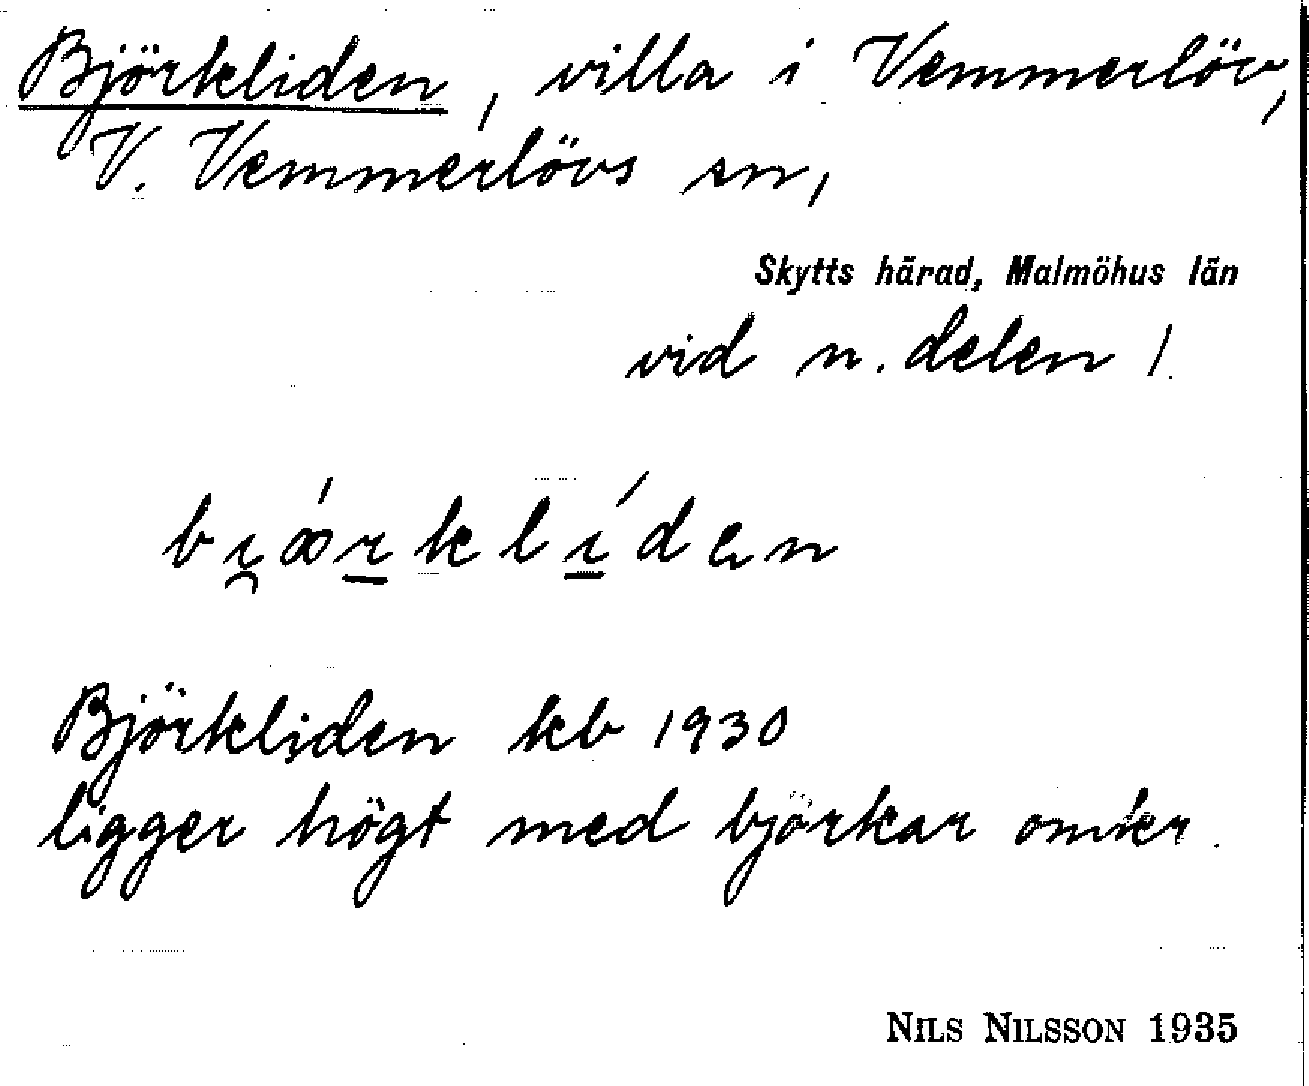 Björkliden, villa i Vemmerlöv,
V. Vemmerlövs sn,
Skytts härad, Malmöhus län
vid n. delen /.
bi̯ǿr̲klí̲dən
Björkliden kb 1930
ligger högt med björkar omkr.
NILS NILSSON 1935